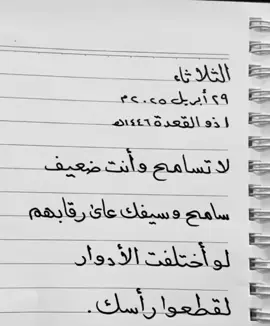 الثلاثاء
٢٩ أبريل ٢٠٢٥ م
١ ذو القعدة ١٤٤٦هـ
لا تسامح وأنت ضعيف
سامح وسيفك على رقابهم
لو أختلفت الأدوار
لقطعوا رأسك.